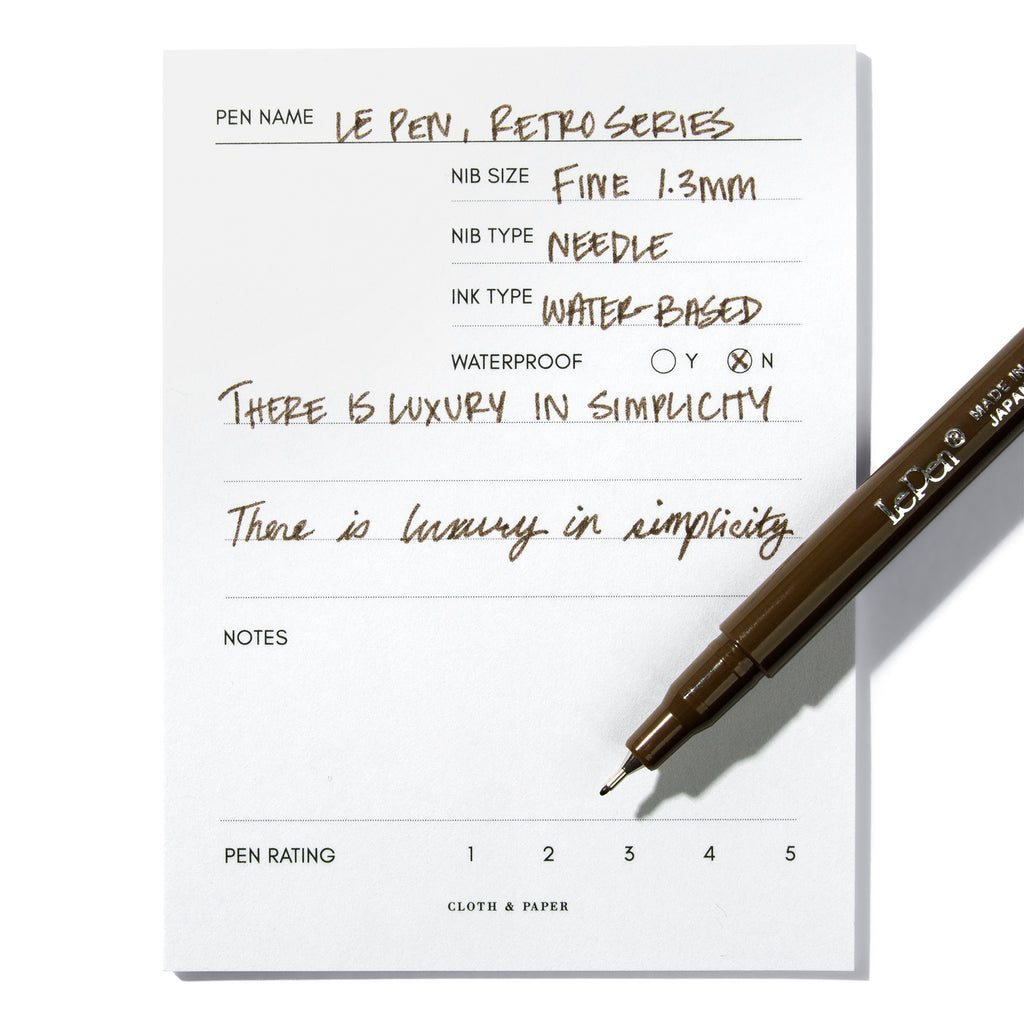 PEN NAME LE PEN, RETRO SERIES
NIB SIZE FINE 1.3MM
NIB TYPE NEEDLE
INK TYPE WATER-BASED
WATERPROOF Y N
THERE IS LUXURY IN SIMPLICITY
There is luxury in simplicity
NOTES
PEN RATING 1 2 3 4 5
CLOTH & PAPER
LePen®
MADE IN
JAPAN